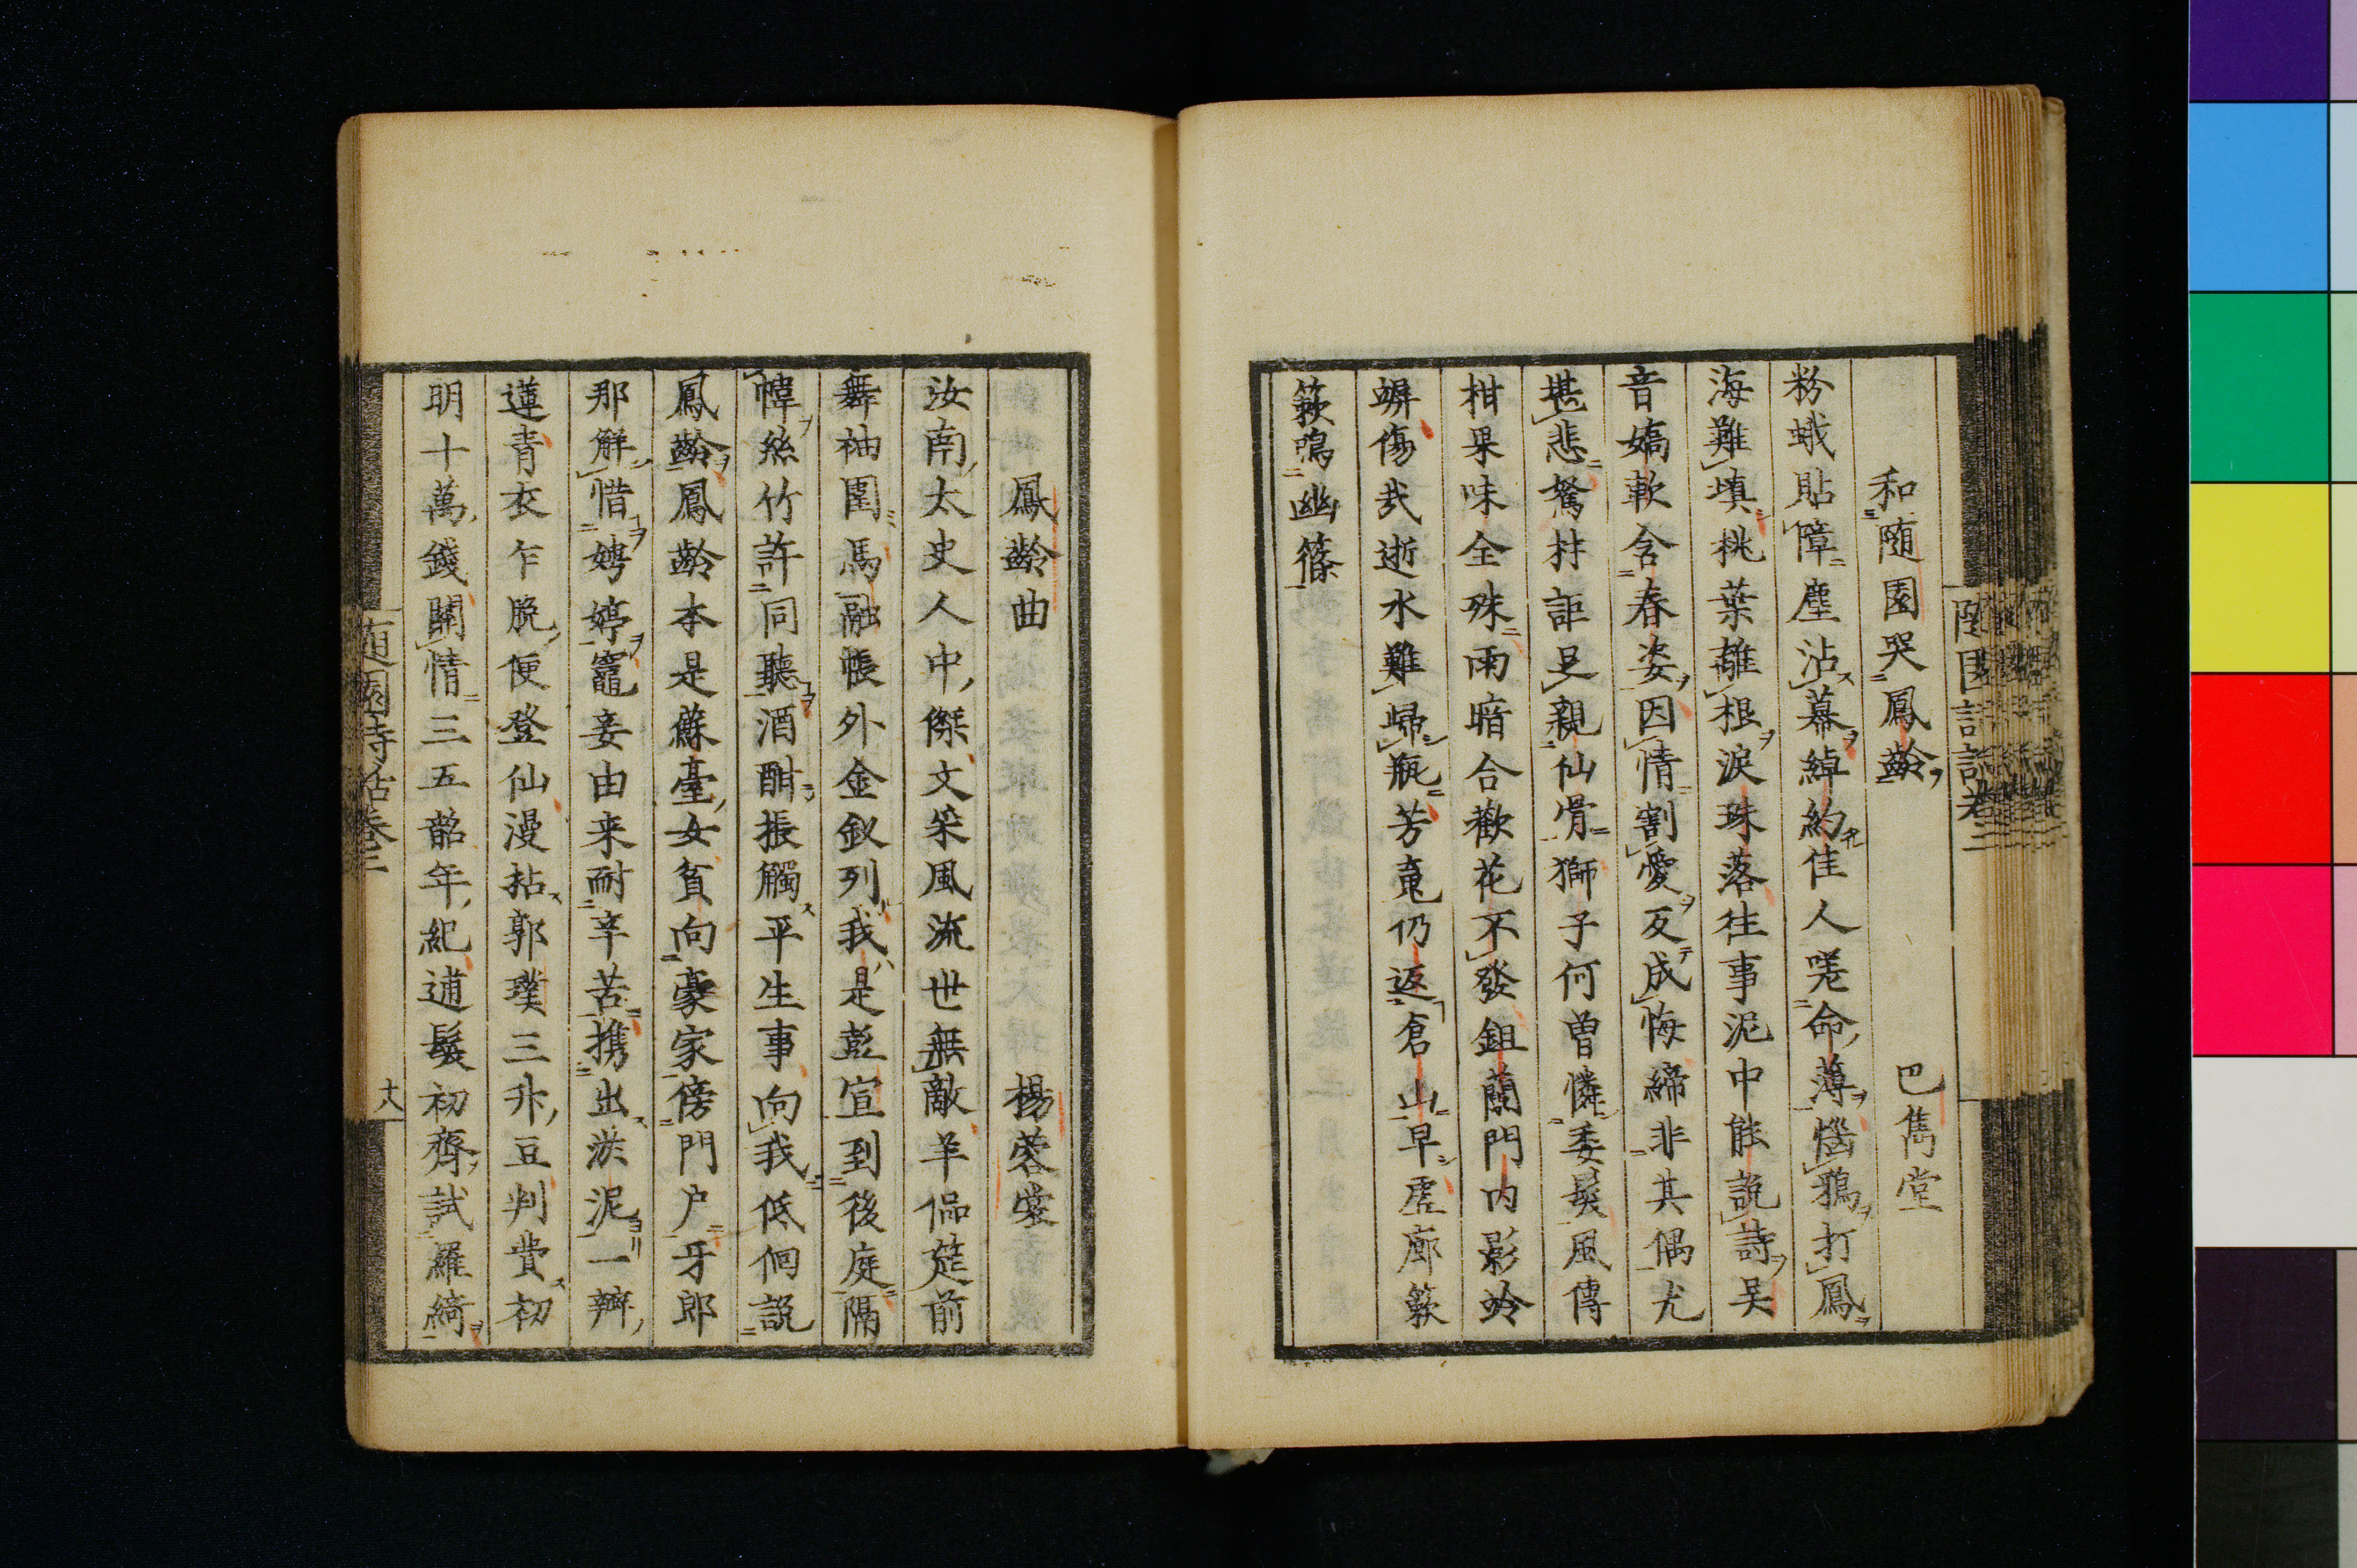 隨園詩話卷三
和隨園哭鳳齡　巴雋堂
粉蛾貼障塵沾幕綽約佳人嗟命薄惱鴉打鳳
海難填桃葉離根淚珠落往事泥中能說詩吴
音嬌軟含春姿因情割愛反成悔締非其偶尤
堪悲駑材詎足親仙骨獅子何曾憐委髮風傳
柑果味全殊雨暗合歡花不發鉏蘭門内影竛
竮傷哉逝水難歸瓶芳䰟仍返倉山早虛廊簌
簌鳴幽篠
鳳齡曲　楊蓉裳
汝南太史人中傑文采風流世無敵羊侃筵前
舞袖圍馬融帳外金釵列我是彭宣到後庭隔
幃絲竹許同聽酒酣振觸平生事向我低佪說
鳳齡鳳齡本是蘇臺女貧向豪家傍門户牙郎
那解惜娉婷竈妾由来耐辛苦携出淤泥一瓣
蓮青衣乍脫便登仙漫拈郭璞三升豆判費初
明十萬錢關情三五韶年紀逋髮初齊試羅綺
隨園詩話卷三
十八